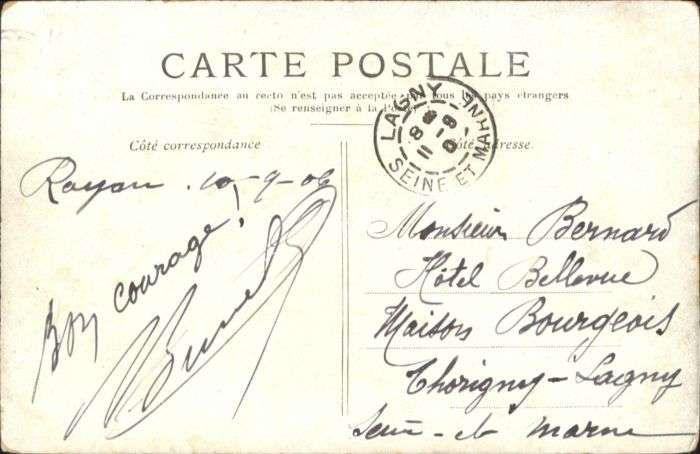 CARTE POSTALE
La Correspondance au recto n'est pas acceptée par tous les pays étrangers
(Se renseigner à la Poste)
LAGNY
SEINE ET MARNE
8
11 9
Côté correspondance
Côté adresse.
Royan 10-9-06
Bon courage!
Monsieur Bernard
Hôtel Bellevue
Maison Bourgeois
Thorigny-Lagny
Seine-et-Marne